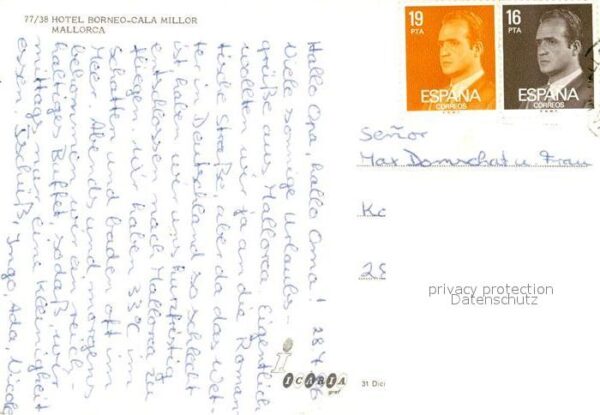 77/38 HOTEL BORNEO-CALA MILLOR
MALLORCA
19
PTA
ESPAÑA
CORREOS
16
PTA
ESPAÑA
CORREOS
Hallo Opa, hallo Oma! 28.7.86
Viele sonnige Urlaubs-
grüße aus Mallorca. Eigentlich
wollten wir ja an die Roman-
tische Straße, aber da das Wet-
ter in Deutschland so schlecht
ist, haben wir uns kurzfristig
entschlossen nach Mallorca zu
fliegen. Wir haben 33°C im
Schatten und baden oft im
Meer. Abends und morgens
bekommen wir ein reich-
haltiges Buffet, sodaß wir
mittags nur eine Kleinigkeit
essen. Tschüß, Ingo, Ada, Nicole
Señor
Max Domschat u. Frau
K
28
privacy protection
Datenschutz
ICARIA
graf
31 Dic